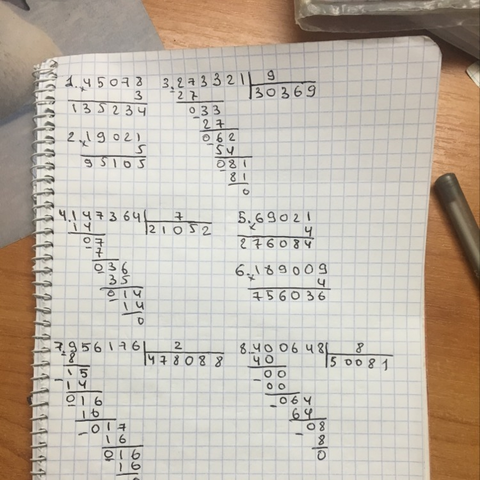 1. 45078
× 3
135234
2. 19021
× 5
95105
3. 273321 | 9
27 | 30369
033
27
062
54
081
81
0
4. 147364 | 7
14 | 21052
07
7
036
35
014
14
0
5. 69021
× 4
276084
6. 189009
× 4
756036
7. 956176 | 2
8 | 478088
15
14
016
16
017
16
016
16
0
8. 400648 | 8
40 | 50081
00
00
064
64
08
8
0